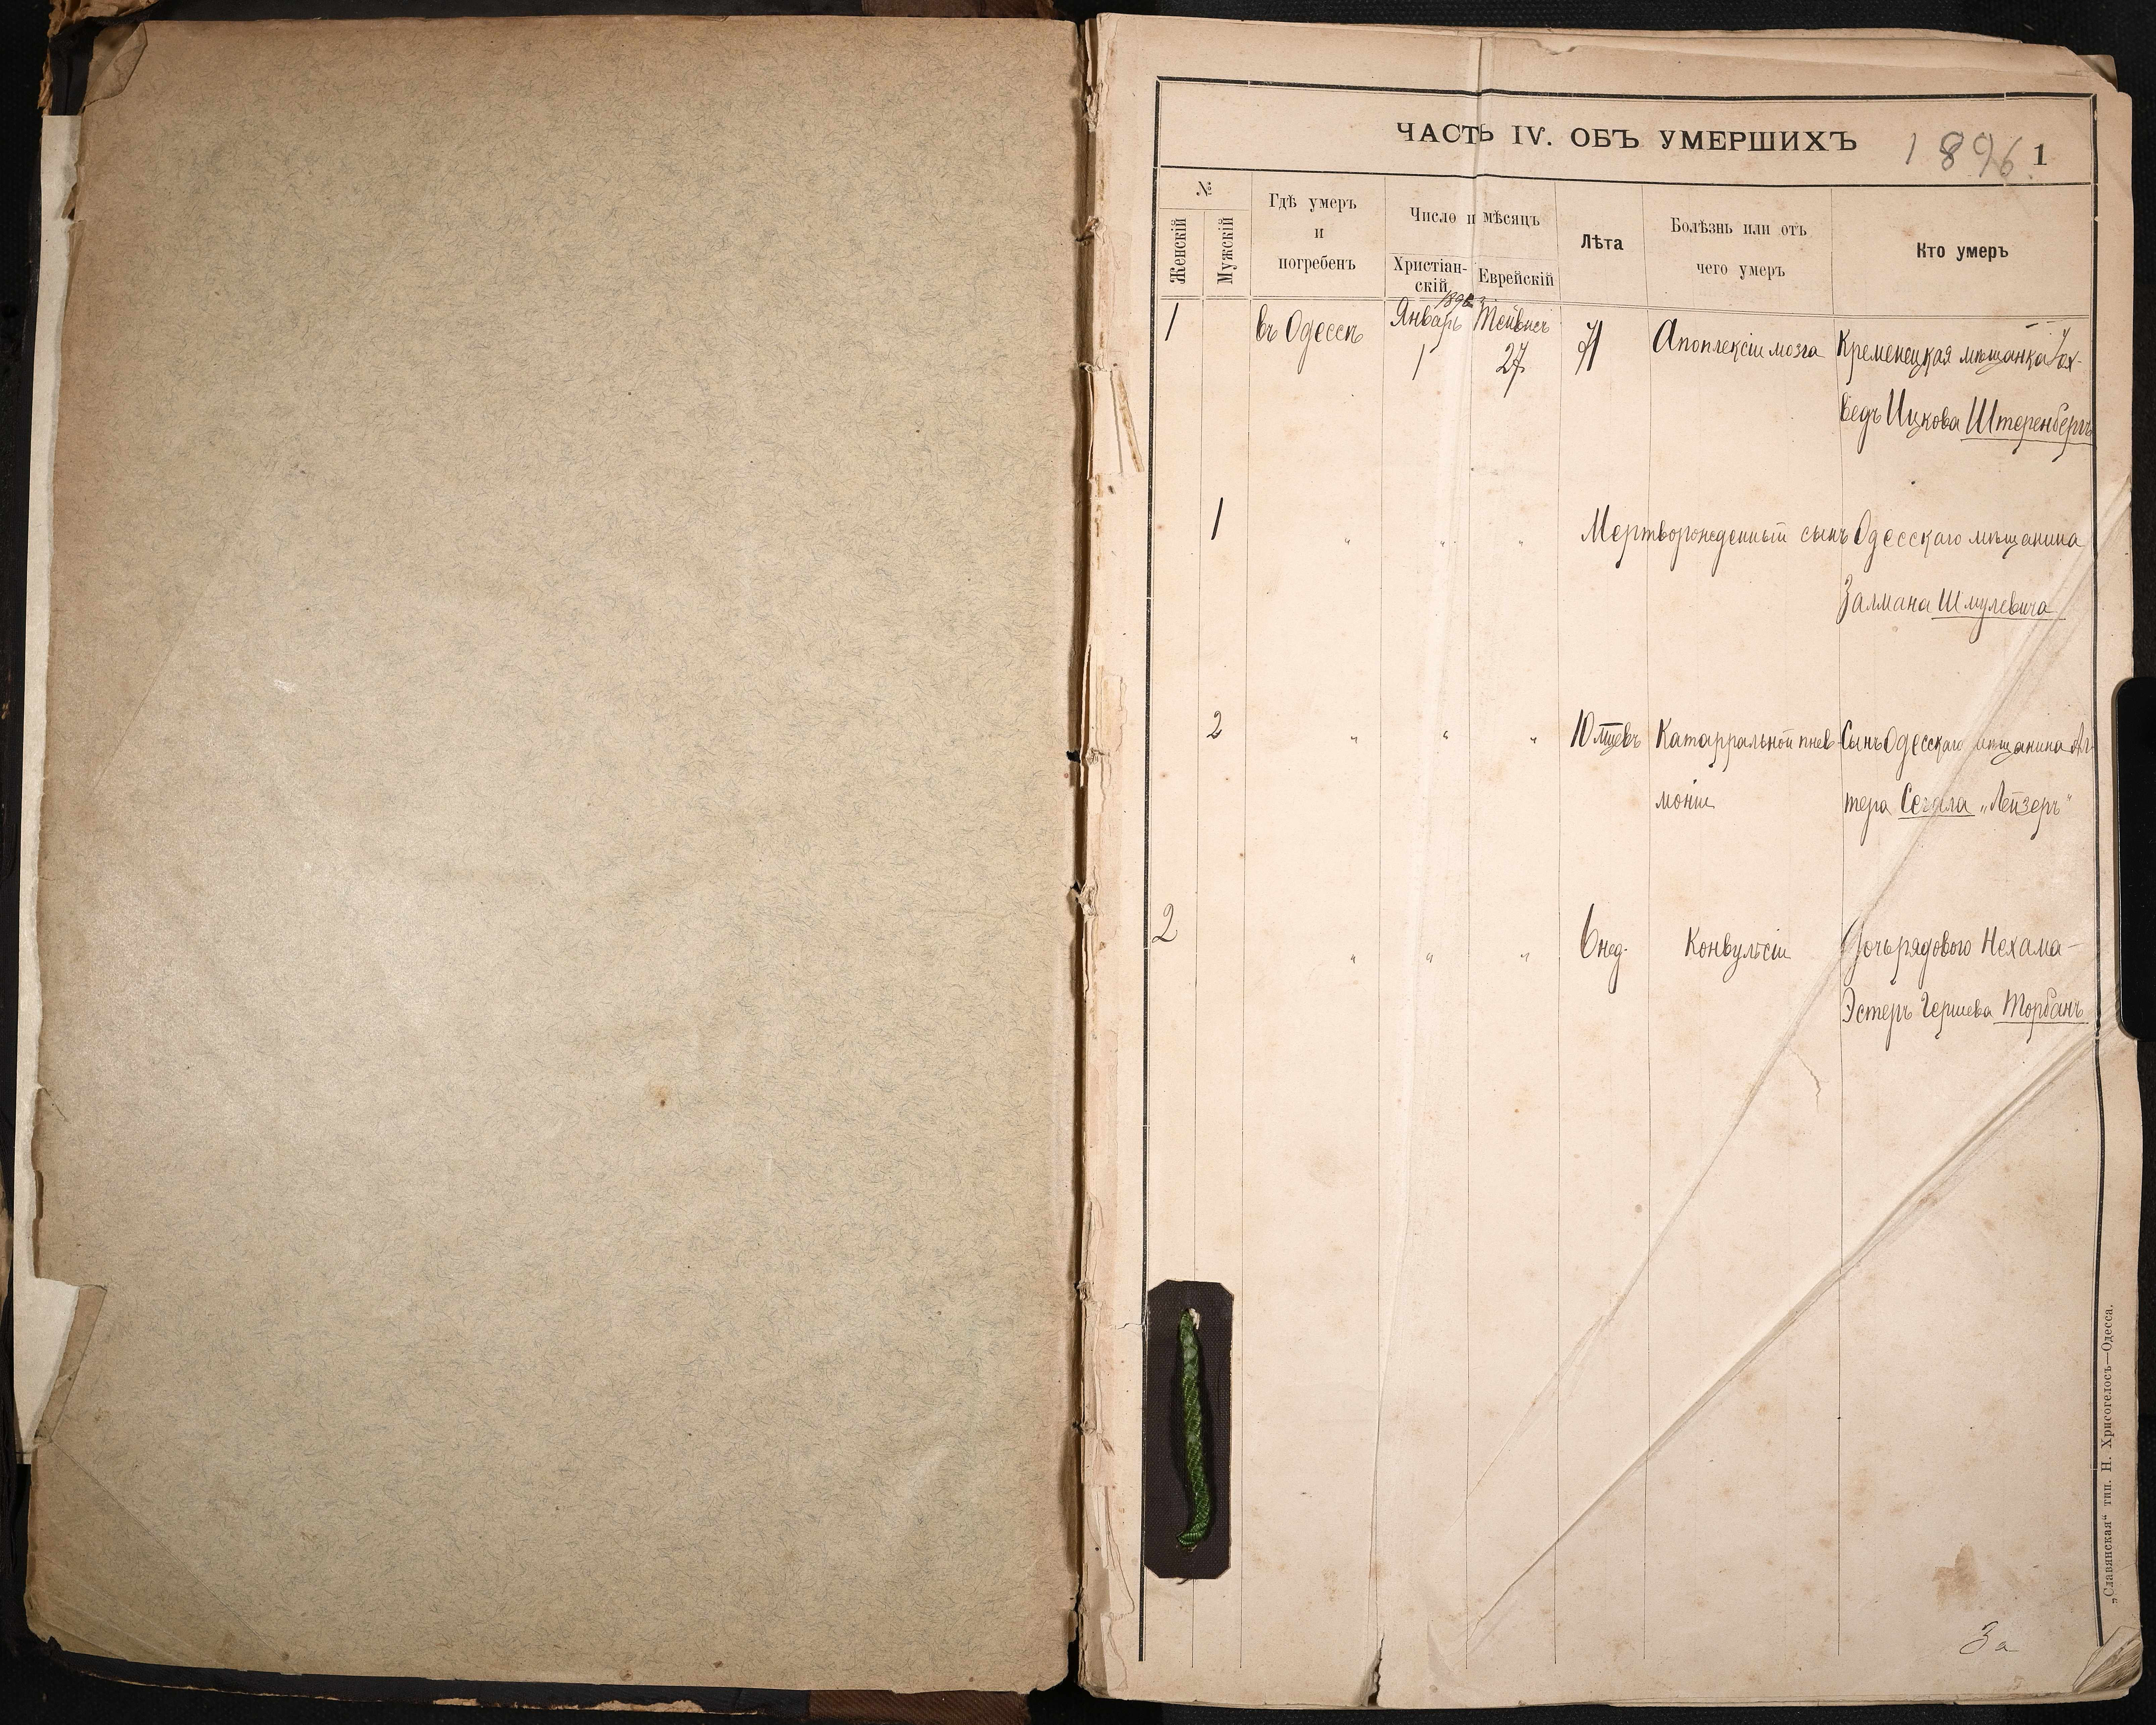 ЧАСТЬ IV. ОБЪ УМЕРШИХЪ 1896 1
№
Женскій
Мужскій
Гдѣ умеръ
и
погребенъ
Число и мѣсяцъ
Христіан-
скій
Еврейскій
Лѣта
Болѣзнь или отъ
чего умеръ
Кто умеръ
1 въ Одессѣ Январь 1896 Тейвисъ
1 27 71 Апоплексіи мозга Кременецкая мѣщанка Іох-
ведъ Ицкова Штеренбергъ
1 " " " Мертворожденный сынъ Одесскаго мѣщанина
Залмана Шмулевича
2 " " " 10 мцевъ Катарральной пнев- Сынъ Одесскаго мѣщанина Аль-
моніи тера Сегала „Лейзеръ“
2 " " " 6 нед. Конвульсіи Дочь рядового Нехама-
Эстеръ Гершева Торбанъ
За
„Славянская“ тип. Н. Хрисогелосъ—Одесса.